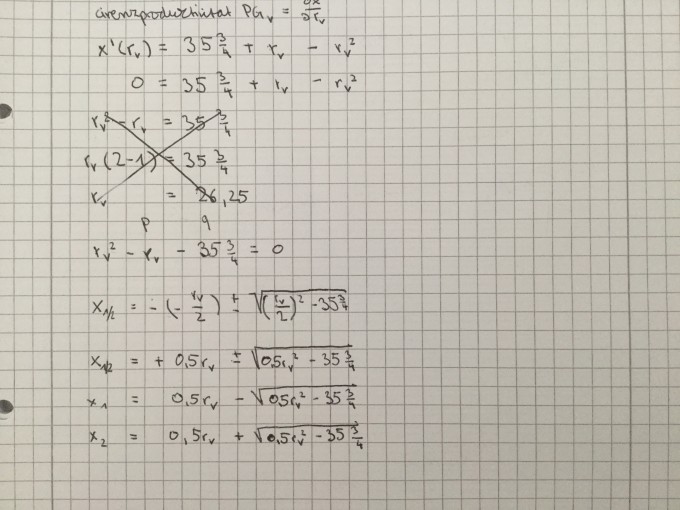 Grenzproduktivität PG_v = ∂x/∂r_v
x'(r_v) = 35 3/4 + r_v - r_v²
0 = 35 3/4 + r_v - r_v²
r_v² - r_v = 35 3/4
r_v (2-1) = 35 3/4
r_v = 26,25
p q
r_v² - r_v - 35 3/4 = 0
x_1/2 = - (- r_v/2) ± √((r_v/2)² - 35 3/4)
x_1/2 = + 0,5r_v ± √(0,5r_v² - 35 3/4)
x_1 = 0,5r_v - √(0,5r_v² - 35 3/4)
x_2 = 0,5r_v + √(0,5r_v² - 35 3/4)